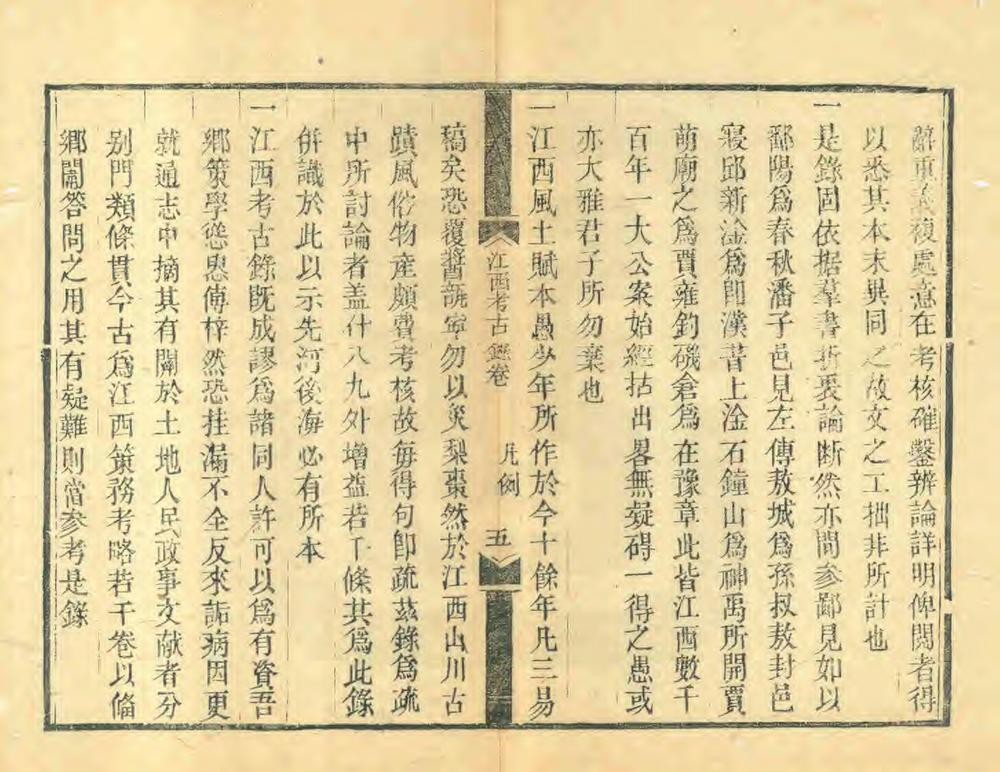 辭重義複處意在考核確鑿辨論詳明俾閱者得
以悉其本末異同之故文之工拙非所計也
一是錄固依据羣書折衷論斷然亦間參鄙見如以
鄱陽爲春秋潘子邑見左傳敖城爲孫叔敖封邑
寢邱新淦爲卽漢書上淦石鐘山爲神禹所開賈
萌廟之爲賈雍釣磯倉爲在豫章此皆江西數千
百年一大公案始經拈出畧無疑碍一得之愚或
亦大雅君子所勿棄也
一江西風土賦本愚少年所作於今十餘年凡三易
江西考古錄卷 凡例 五
稿矣恐覆醬瓿寧勿以災梨棗然於江西山川古
蹟風俗物產頗費考核故每得句卽疏茲錄爲疏
中所討論者盖什八九外增益若干條其爲此錄
併識於此以示先河後海必有所本
一江西考古錄既成謬爲諸同人許可以爲有資吾
鄉策學慫恿傅梓然恐挂漏不全反來詬病因更
就通志中摘其有關於土地人民政事文献者分
别門類條貫今古爲江西策務考略若干卷以備
鄉闈答問之用其有疑難則當參考是錄